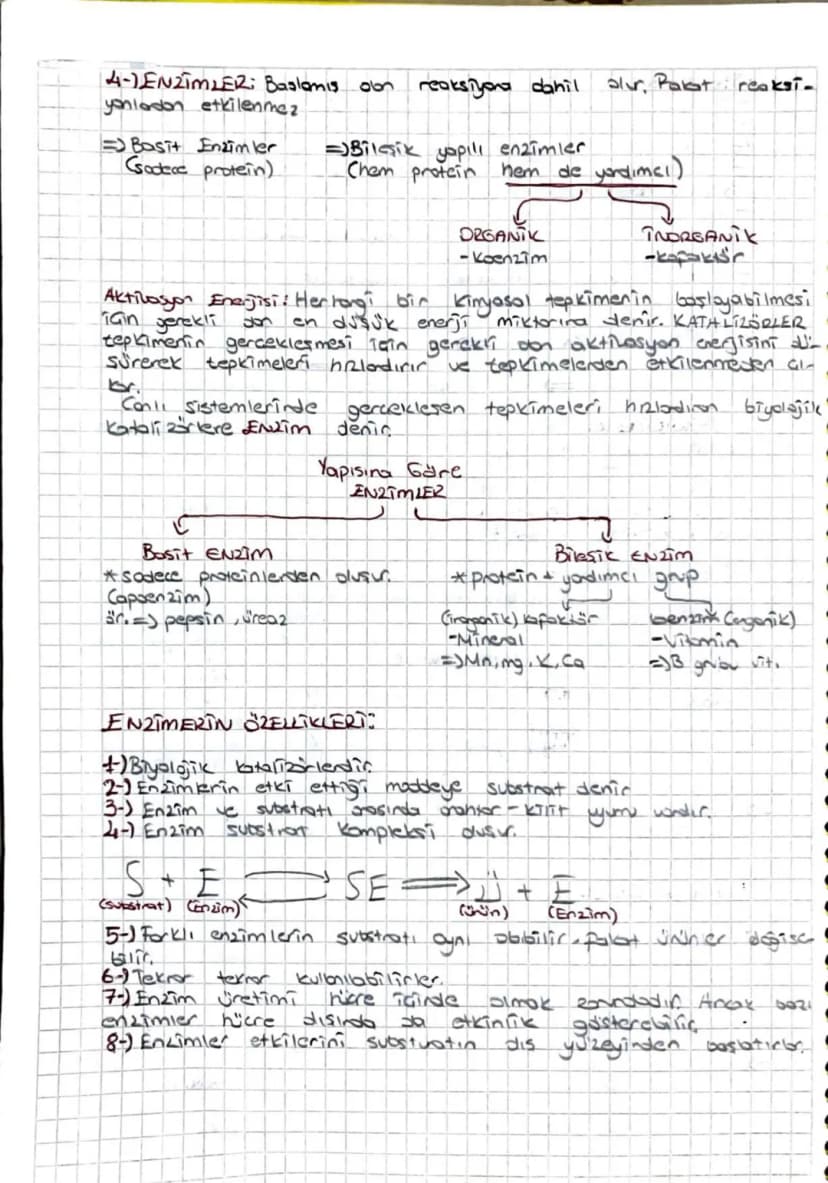 4-) ENZİMLER: Başlamış olan reaksiyona dahil olur. Fakat reaksi-
yonlardan etkilenmez
=> Basit Enzimler
(sadece protein)
=> Bileşik yapılı enzimler
(hem protein hem de yardımcı)
ORGANİK
- Koenzim
İNORGANİK
- Kofaktör
Aktivasyon Enerjisi: Herhangi bir kimyasal tepkimenin başlayabilmesi
için gerekli olan en düşük enerji miktarına denir. KATALİZÖRLER
tepkimenin gerçekleşmesi için gerekli olan aktivasyon enerjisini dü-
şürerek tepkimeleri hızlandırır ve tepkimelerden etkilenmeden çı-
kar.
Canlı sistemlerinde gerçekleşen tepkimeleri hızlandıran biyolojik
katalizörlere ENZİM denir.
Yapısına Göre
ENZİMLER
Basit ENZİM
* sadece proteinlerden oluşur.
(apoenzim)
ör. => pepsin, üreaz
Bileşik ENZİM
* protein + yardımcı grup
(inorganik) kofaktör
- Mineral
=> Mn, mg, K, Ca
(organik)
- Vitamin
=> B grubu vit.
ENZİMERİN ÖZELLİKLERİ:
1-) Biyolojik katalizörlerdir.
2-) Enzimlerin etki ettiği maddeye substrat denir
3-) Enzim ve substratı arasında anahtar - kilit uyumu vardır.
4-) Enzim substrat kompleksi oluşur.
S + E ⇄ SE => Ü + E
(substrat) (Enzim) (ürün) (Enzim)
5-) Farklı enzimlerin substratı aynı olabilir. fakat ürünler değişe-
bilir.
6-) Tekrar tekrar kullanılabilirler.
7-) Enzim üretimi hücre içinde olmak zorundadır. Ancak bazı
enzimler hücre dışında da etkinlik gösterebilir.
8-) Enzimler etkilerini substratın dış yüzeyinden başlatırlar.